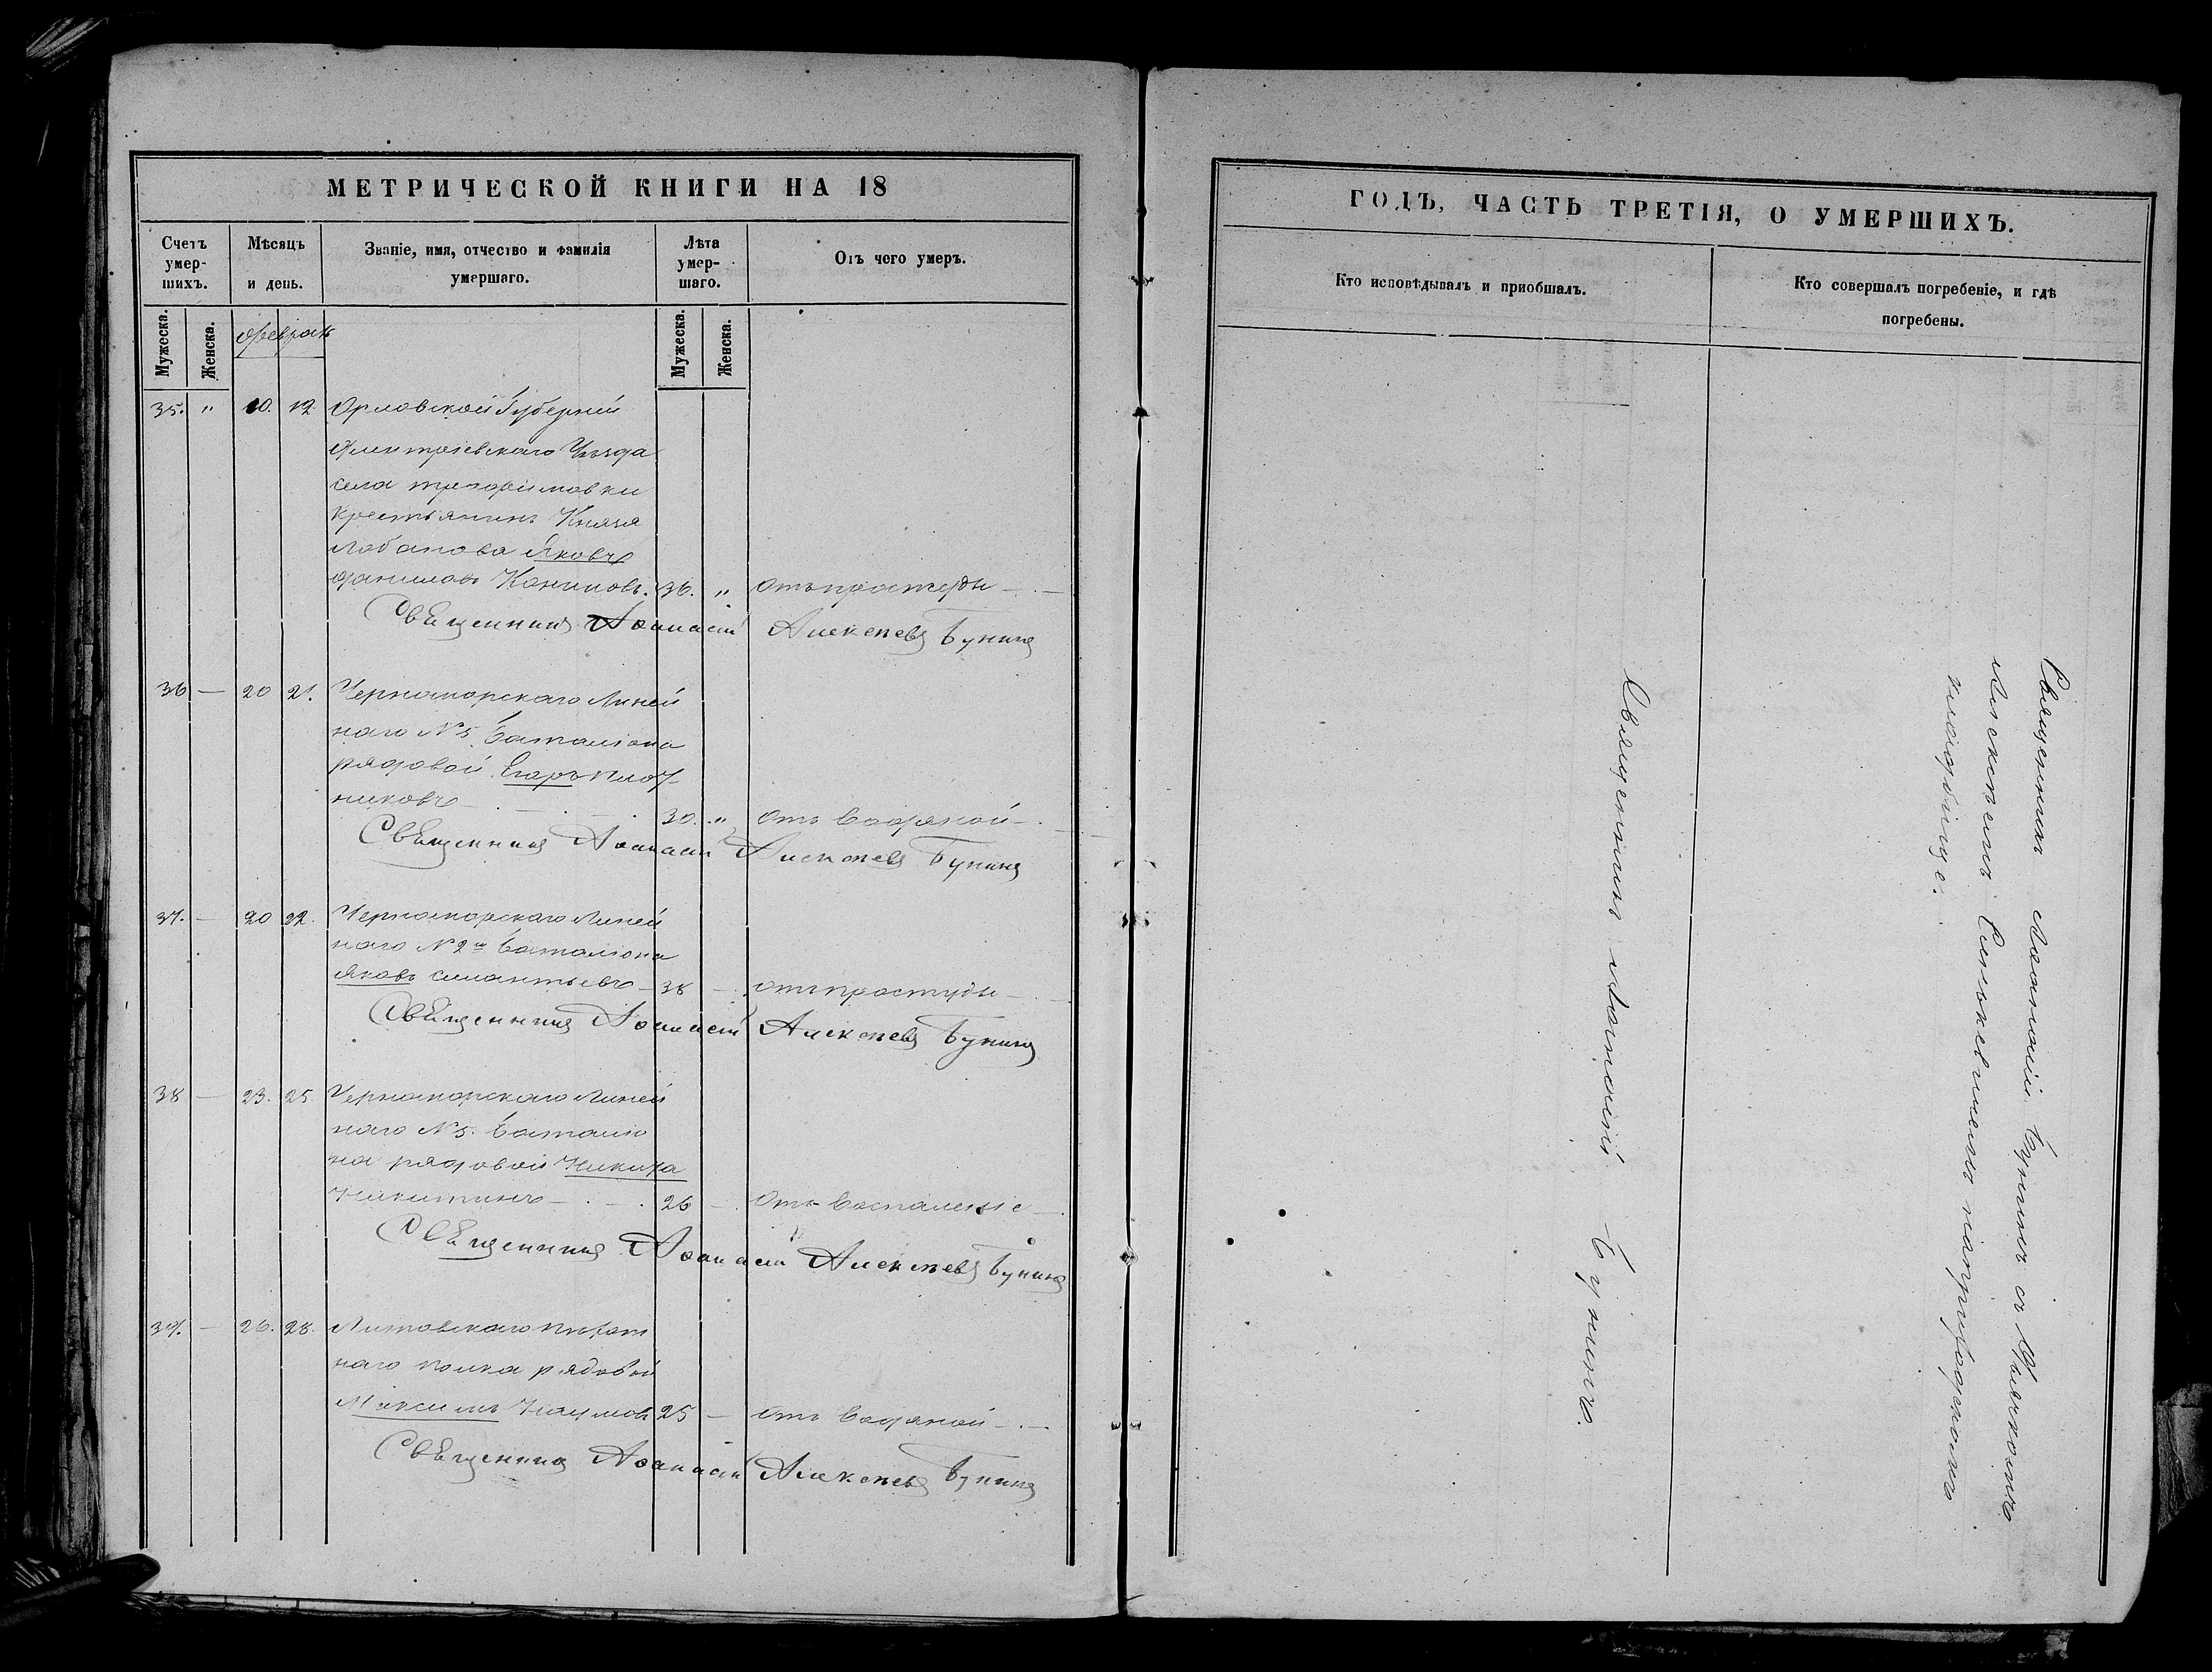 МЕТРИЧЕСКОЙ КНИГИ НА 18
Счетъ умер-шихъ.
Мѣсяцъ и день.
Званіе, имя, отчество и фамилія умершаго.
Лѣта умер-шаго.
Отъ чего умеръ.
Мужеска.
Женска.
Февраль
Мужеска.
Женска.
35. " 10. 12 Орловской Губерніи
Дмитріевскаго Уѣзда
села
Крестьянинъ Князя
Лобанова Яковъ
Даниловъ 36. " Отъ простуды
Священникъ Аѳанасій Алексѣевъ Бунинъ
36 — 20 21. Черноморскаго Линей
наго №5 баталіона
рядовой Егоръ Плот
никовъ 30. " Отъ водяной
Священникъ Аѳанасій Алексѣевъ Бунинъ
37. — 20 22. Черноморскаго Линей
наго №2го баталіона
Яковъ 38 — Отъ простуды
Священникъ Аѳанасій Алексѣевъ Бунинъ
38 — 23. 25 Черноморскаго Линей
наго №5. баталіо
на рядовой Никита
Никитинъ 26 — Отъ воспаленіе
Священникъ Аѳанасій Алексѣевъ Бунинъ
39. — 26. 28. Литовскаго пѣхот
наго полка рядовой
Максимъ Наумовъ 25 — Отъ водяной
Священникъ Аѳанасій Алексѣевъ Бунинъ
ГОДЪ, ЧАСТЬ ТРЕТІЯ, О УМЕРШИХЪ.
Кто исповѣдывалъ и приобшалъ.
Кто совершалъ погребеніе, и гдѣ
погребены.
Священникъ Аѳанасій Бунинъ.
Священникъ Аѳанасій Бунинъ съ Дьякономъ
Алексѣемъ на приходскомъ
кладбище.